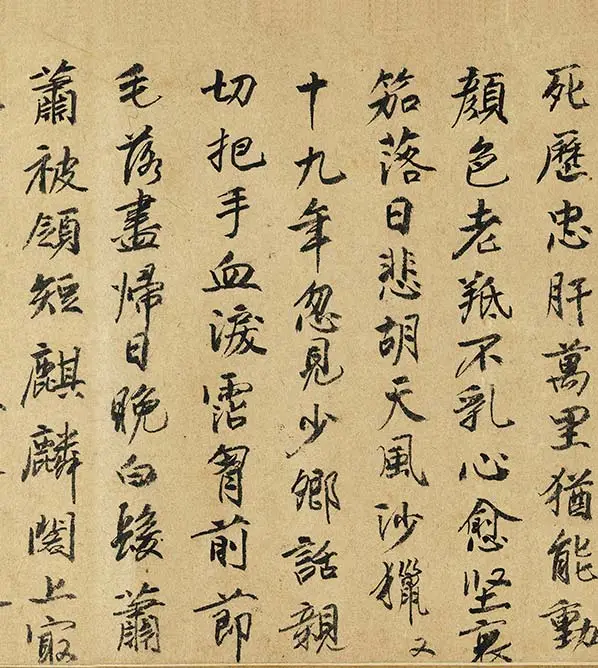 死歷忠肝萬里猶能動
顏色老羝不乳心愈堅哀
笳落日悲胡天風沙獵又
十九年忽見少卿話親
切把手血淚霑胷前節
毛落盡歸日晚白髮蕭
蕭被領短麒麟閣上